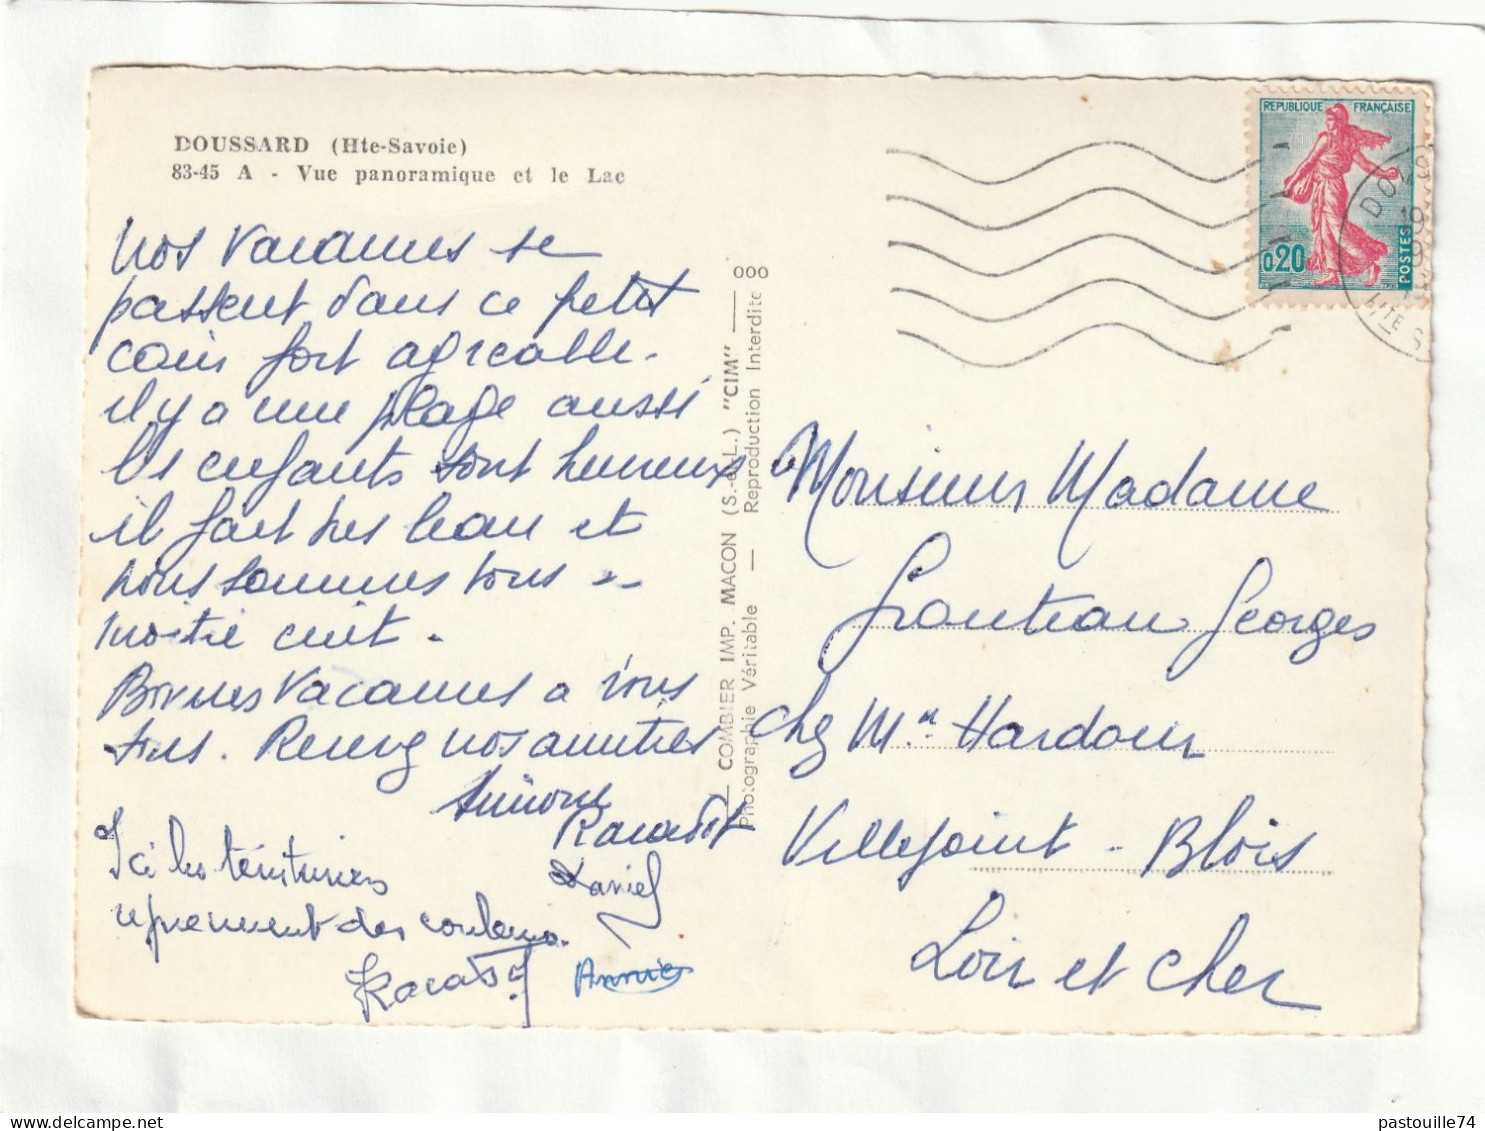 DOUSSARD (Hte-Savoie)
83-45 A - Vue panoramique et le Lac
Nos vacances se
passent dans ce petit
coin fort agréable.
il y a une plage aussi
les enfants sont heureux
il fait très beau et
nous sommes tous
moitié cuit.
Bonnes Vacances a vous
tous. Recevez nos amitiés
Simone
Racassot
Daniel
Ici les teinturiers
reprennent des couleurs.
Racassot
Annie
COMBIER IMP. MACON (S.-et-L.) "CIM"
Photographie Véritable — Reproduction Interdite
000
REPUBLIQUE FRANÇAISE
0,20
POSTES
Monsieur Madame
Georges
chez Mr Hardouin
Villejoint - Blois
Loir et Cher
pastouille74